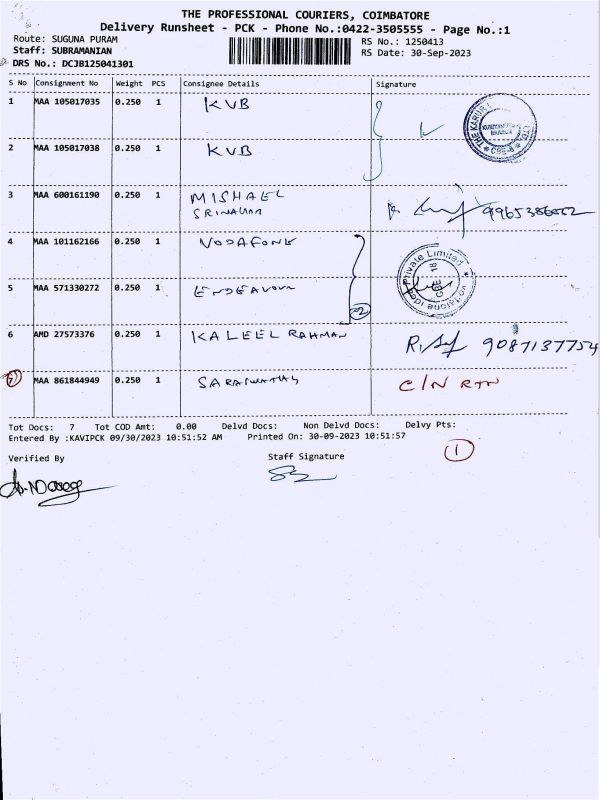 THE PROFESSIONAL COURIERS, COIMBATORE
Delivery Runsheet - PCK - Phone No.:0422-3505555 - Page No.:1
Route: SUGUNA PURAM RS No.: 1250413
Staff: SUBRAMANIAN RS Date: 30-Sep-2023
DRS No.: DCJB125041301
S No Consignment No Weight PCS Consignee Details Signature
1 MAA 105017035 0.250 1 KVB
2 MAA 105017038 0.250 1 KVB
THE KARUR
LTD.
CBE-8
3 MAA 600161190 0.250 1 MISHAEL
SRINAGAR 9965386862
4 MAA 101162166 0.250 1 VODAFONE
Private Limited
Vodafone Idea
CBE 18
5 MAA 571330272 0.250 1 ENDEAVOUR
2
6 AMD 27573376 0.250 1 KALEEL RAHMAN 9087137754
7 MAA 861844949 0.250 1 SARASWATHY C/N RTN
Tot Docs: 7 Tot COD Amt: 0.00 Delvd Docs: Non Delvd Docs: Delvy Pts:
Entered By :KAVIPCK 09/30/2023 10:51:52 AM Printed On: 30-09-2023 10:51:57
1
Verified By Staff Signature